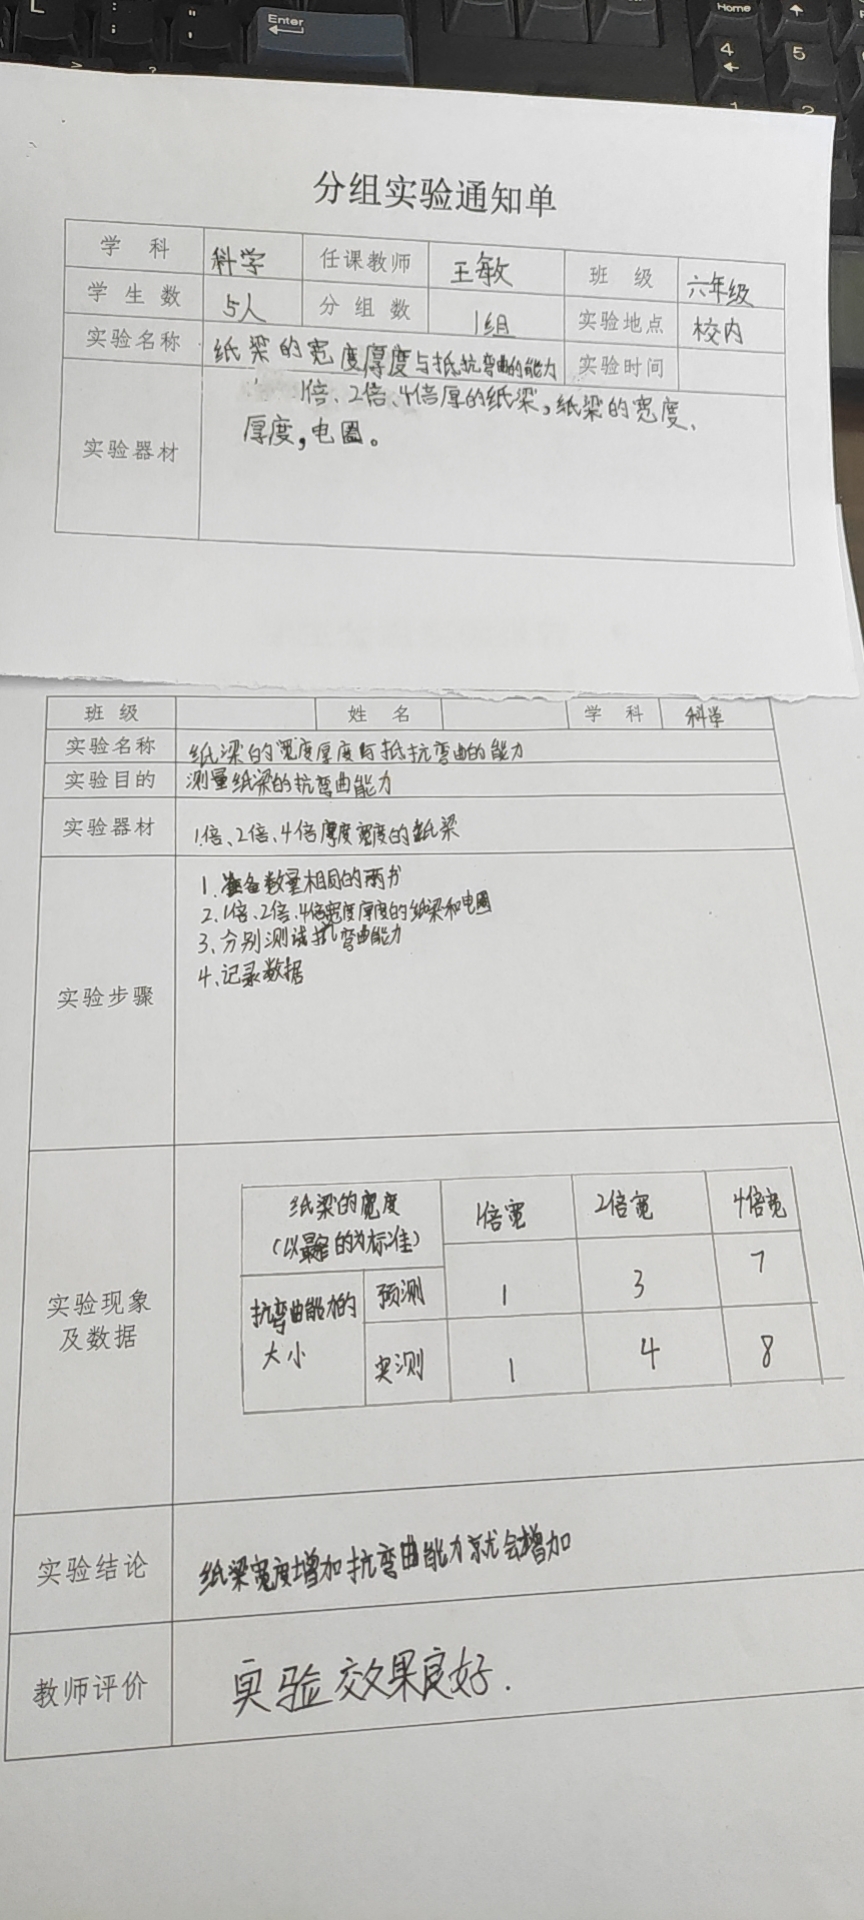 L : " Enter Home
; ' 4 5
> ? 1 2
分组实验通知单
学 科 科学 任课教师 王敏 班 级 六年级
学生数 5人 分组数 1组 实验地点 校内
实验名称 纸梁的宽度厚度与抵抗弯曲的能力 实验时间
实验器材 1倍、2倍、4倍厚的纸梁,纸梁的宽度、
厚度,电圈。
班 级 姓 名 学 科 科学
实验名称 纸梁的宽度厚度与抵抗弯曲的能力
实验目的 测量纸梁的抗弯曲能力
实验器材 1倍、2倍、4倍厚度宽度的纸梁
实验步骤
1. 准备数量相同的两书
2. 1倍、2倍、4倍宽度厚度的纸梁和电圈
3. 分别测试抗弯曲能力
4. 记录数据
实验现象
及数据
纸梁的宽度 1倍宽 2倍宽 4倍宽
(以最窄的为标准)
抗弯曲能力的 预测 1 3 7
大小 实测 1 4 8
实验结论 纸梁宽度增加抗弯曲能力就会增加
教师评价 实验效果良好.